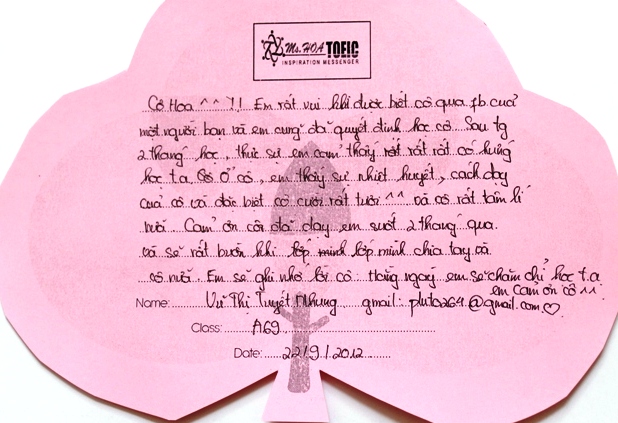 Ms. HOA TOEIC
INSPIRATION MESSENGER
Cô Hoa ^^ !! Em rất vui khi được biết cô qua fb của
một người bạn và em cũng đã quyết định học cô. Sau tg
2 tháng học, thực sự em cảm thấy rất rất rất có hứng
học t.a. Ở cô, em thấy sự nhiệt huyết, cách dạy
của cô và đặc biệt cô cười rất tươi ^^ và cô rất tâm lí
nữa. Cảm ơn cô đã dạy em suốt 2 tháng qua.
và sẽ rất buồn khi lớp mình chia tay và
cô nữa. Em sẽ ghi nhớ lời cô: Hằng ngày em sẽ chăm chỉ học t.a
em cảm ơn cô ^^
Name: Vũ Thị Tuyết Nhung gmail: pluto264@gmail.com ♡
Class: A69
Date: 22/9/2012